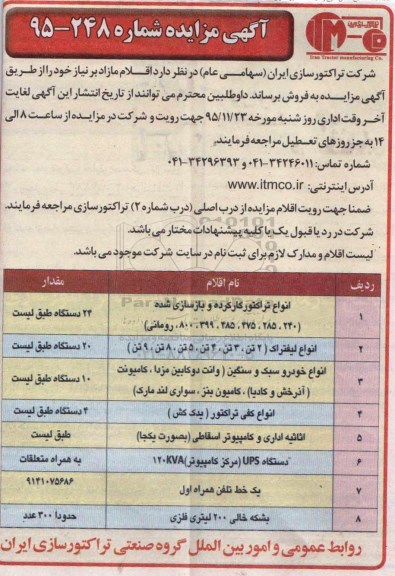 آگهی مزایده شماره ۲۴۸-۹۵
Iran Tractor manufacturing Co.
شرکت تراکتورسازی ایران (سهامی عام) در نظر دارد اقلام مازاد بر نیاز خود را از طریق
آگهی مزایده به فروش برساند. داوطلبین محترم می توانند از تاریخ انتشار این آگهی لغایت
آخر وقت اداری روز شنبه مورخه ۹۵/۱۱/۲۳ جهت رویت و شرکت در مزایده از ساعت ۸ الی
۱۴ به جز روزهای تعطیل مراجعه فرمایند.
شماره تماس: ۳۴۲۴۶۰۱۱-۰۴۱ و ۳۴۲۹۶۳۹۳-۰۴۱
آدرس اینترنتی: www.itmco.ir
ضمنا جهت رویت اقلام مزایده از درب اصلی (درب شماره ۲) تراکتورسازی مراجعه فرمایند.
شرکت در رد یا قبول یک یا کلیه پیشنهادات مختار می باشد.
لیست اقلام و مدارک لازم برای ثبت نام در سایت شرکت موجود می باشد.
ردیف نام اقلام مقدار
۱ انواع تراکتور کارکرده و بازسازی شده ۲۴ دستگاه طبق لیست
(۲۴۰، ۲۸۵، ۴۷۵، ۴۸۵، ۳۹۹، ۸۰۰، رومانی)
۲ انواع لیفتراک (۲ تن، ۳ تن، ۴ تن، ۵ تن، ۸ تن، ۹ تن) ۲۰ دستگاه طبق لیست
۳ انواع خودرو سبک و سنگین (وانت دوکابین مزدا، کامیونت ۱۰ دستگاه طبق لیست
(آذرخش و کادیا)، کامیون بنز، سواری لند مارک)
۴ انواع کفی تراکتور (یدک کش) ۴ دستگاه طبق لیست
۵ اثاثیه اداری و کامپیوتر اسقاطی (بصورت یکجا) طبق لیست
۶ دستگاه UPS (مرکز کامپیوتر) ۱۲۰KVA به همراه متعلقات
۷ یک خط تلفن همراه اول ۹۱۴۱۰۷۵۶۸۶
۸ بشکه خالی ۲۰۰ لیتری فلزی حدودا ۳۰۰ عدد
روابط عمومی و امور بین الملل گروه صنعتی تراکتورسازی ایران